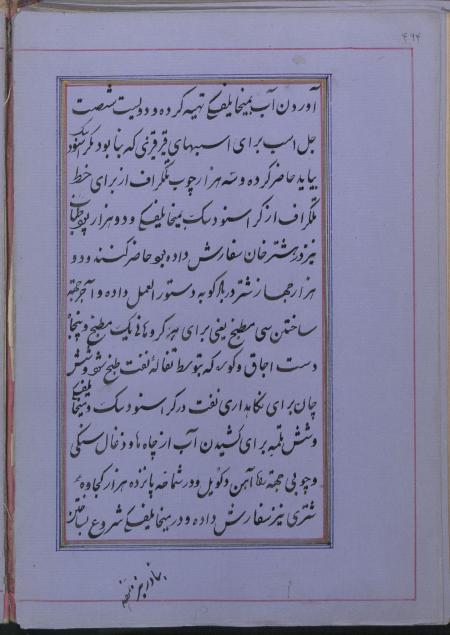 ۴۹۴
آوردن آب بمیخایلفسکی تهیه کرده و دویست شصت
جل اسب برای اسبهای قرقزی که بنا بود بکراسنود
بیاید حاضر کرده و سه هزار چوب تلگراف از برای خط
تلگراف از کراسنودسک بمیخایلفسکی و دو هزار پوط طناب
نیز در هشترخان سفارش داده بود حاضر کنند و دو
هزار جهاز شتر در باکو به دستورالعمل داده و آجر جهة
ساختن سی مطبخ یعنی برای هر کروهانی یک مطبخ و پنجاه
دست اجاق و کوره که بتوسط تفاله نفت طبخ شود و شش
چان برای نگاهداری نفت در کراسنودسک و میخایلفسکی
و شش تلمبه برای کشیدن آب از چاه ها و ذغال سنگی
و چوبی جهة آهن و کویل و در شماخه پانزده هزار کجاوه
شتری نیز سفارش داده و در میخایلفسکی شروع بساختن